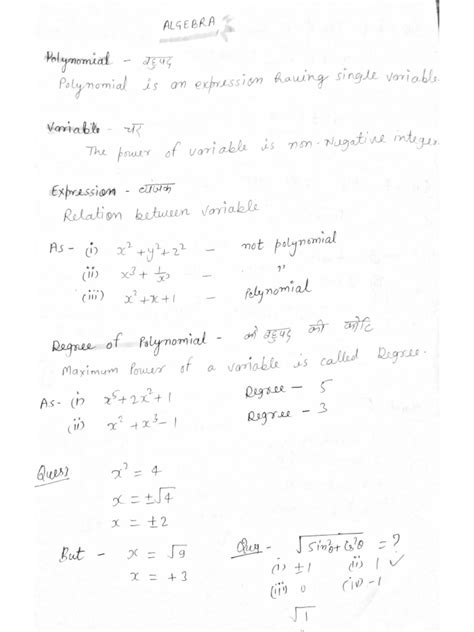 ALGEBRA
Polynomial - बहुपद
Polynomial is an expression having single variable.
Variable - चर
The power of variable is non-Negative integer
Expression - व्यंजक
Relation between variable
As - (i) x² + y² + z² - not polynomial
(ii) x³ + 1/x³ - "
(iii) x² + x + 1 - Polynomial
Degree of Polynomial - बहुपद की कोटि
Maximum Power of a variable is called Degree.
As - (i) x⁵ + 2x² + 1 Degree - 5
(ii) x² + x³ - 1 Degree - 3
Ques) x² = 4
x = ±√4
x = ±2
But - x = √9
x = +3
Ques - √Sin²θ + Cos²θ = ?
(i) ±1 (ii) 1 ✓
(iii) 0 (iv) -1
√1